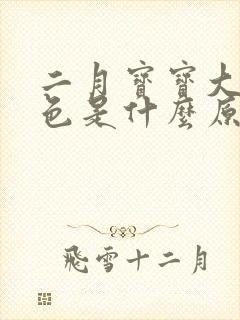 二月寶寶大
色是什麼原
飛雪十二月